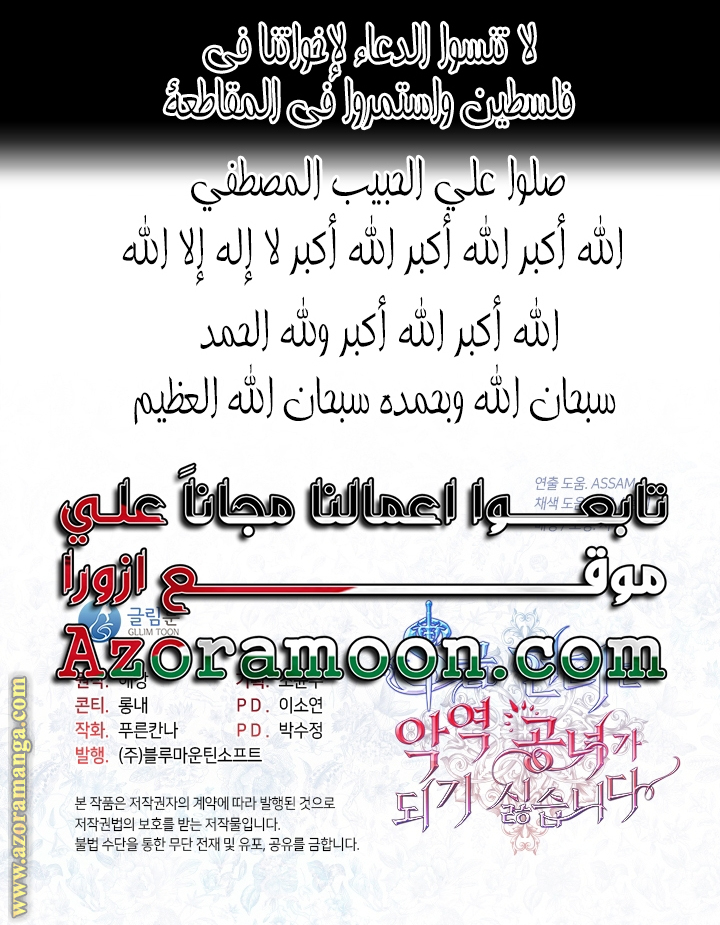 لا تنسوا الدعاء لإخواتنا فى
فلسطين واستمروا فى المقاطعة
صلوا علي الحبيب المصطفي
الله أكبر الله أكبر الله أكبر لا إله إلا الله
الله أكبر الله أكبر ولله الحمد
سبحان الله وبحمده سبحان الله العظيم
연출 도움. ASSAM
채색 도움
تابعوا اعمالنا مجاناً علي
موقع ازورا
글림툰
GLLIM TOON
Azoramoon.com
콘티. 롱내 PD. 이소연
작화. 푸른칸나 PD. 박수정
발행. (주)블루마운틴소프트
악역 공녀가
되기 싫습니다
본 작품은 저작권자의 계약에 따라 발행된 것으로
저작권법의 보호를 받는 저작물입니다.
불법 수단을 통한 무단 전재 및 유포, 공유를 금합니다.
www.azoramanga.com